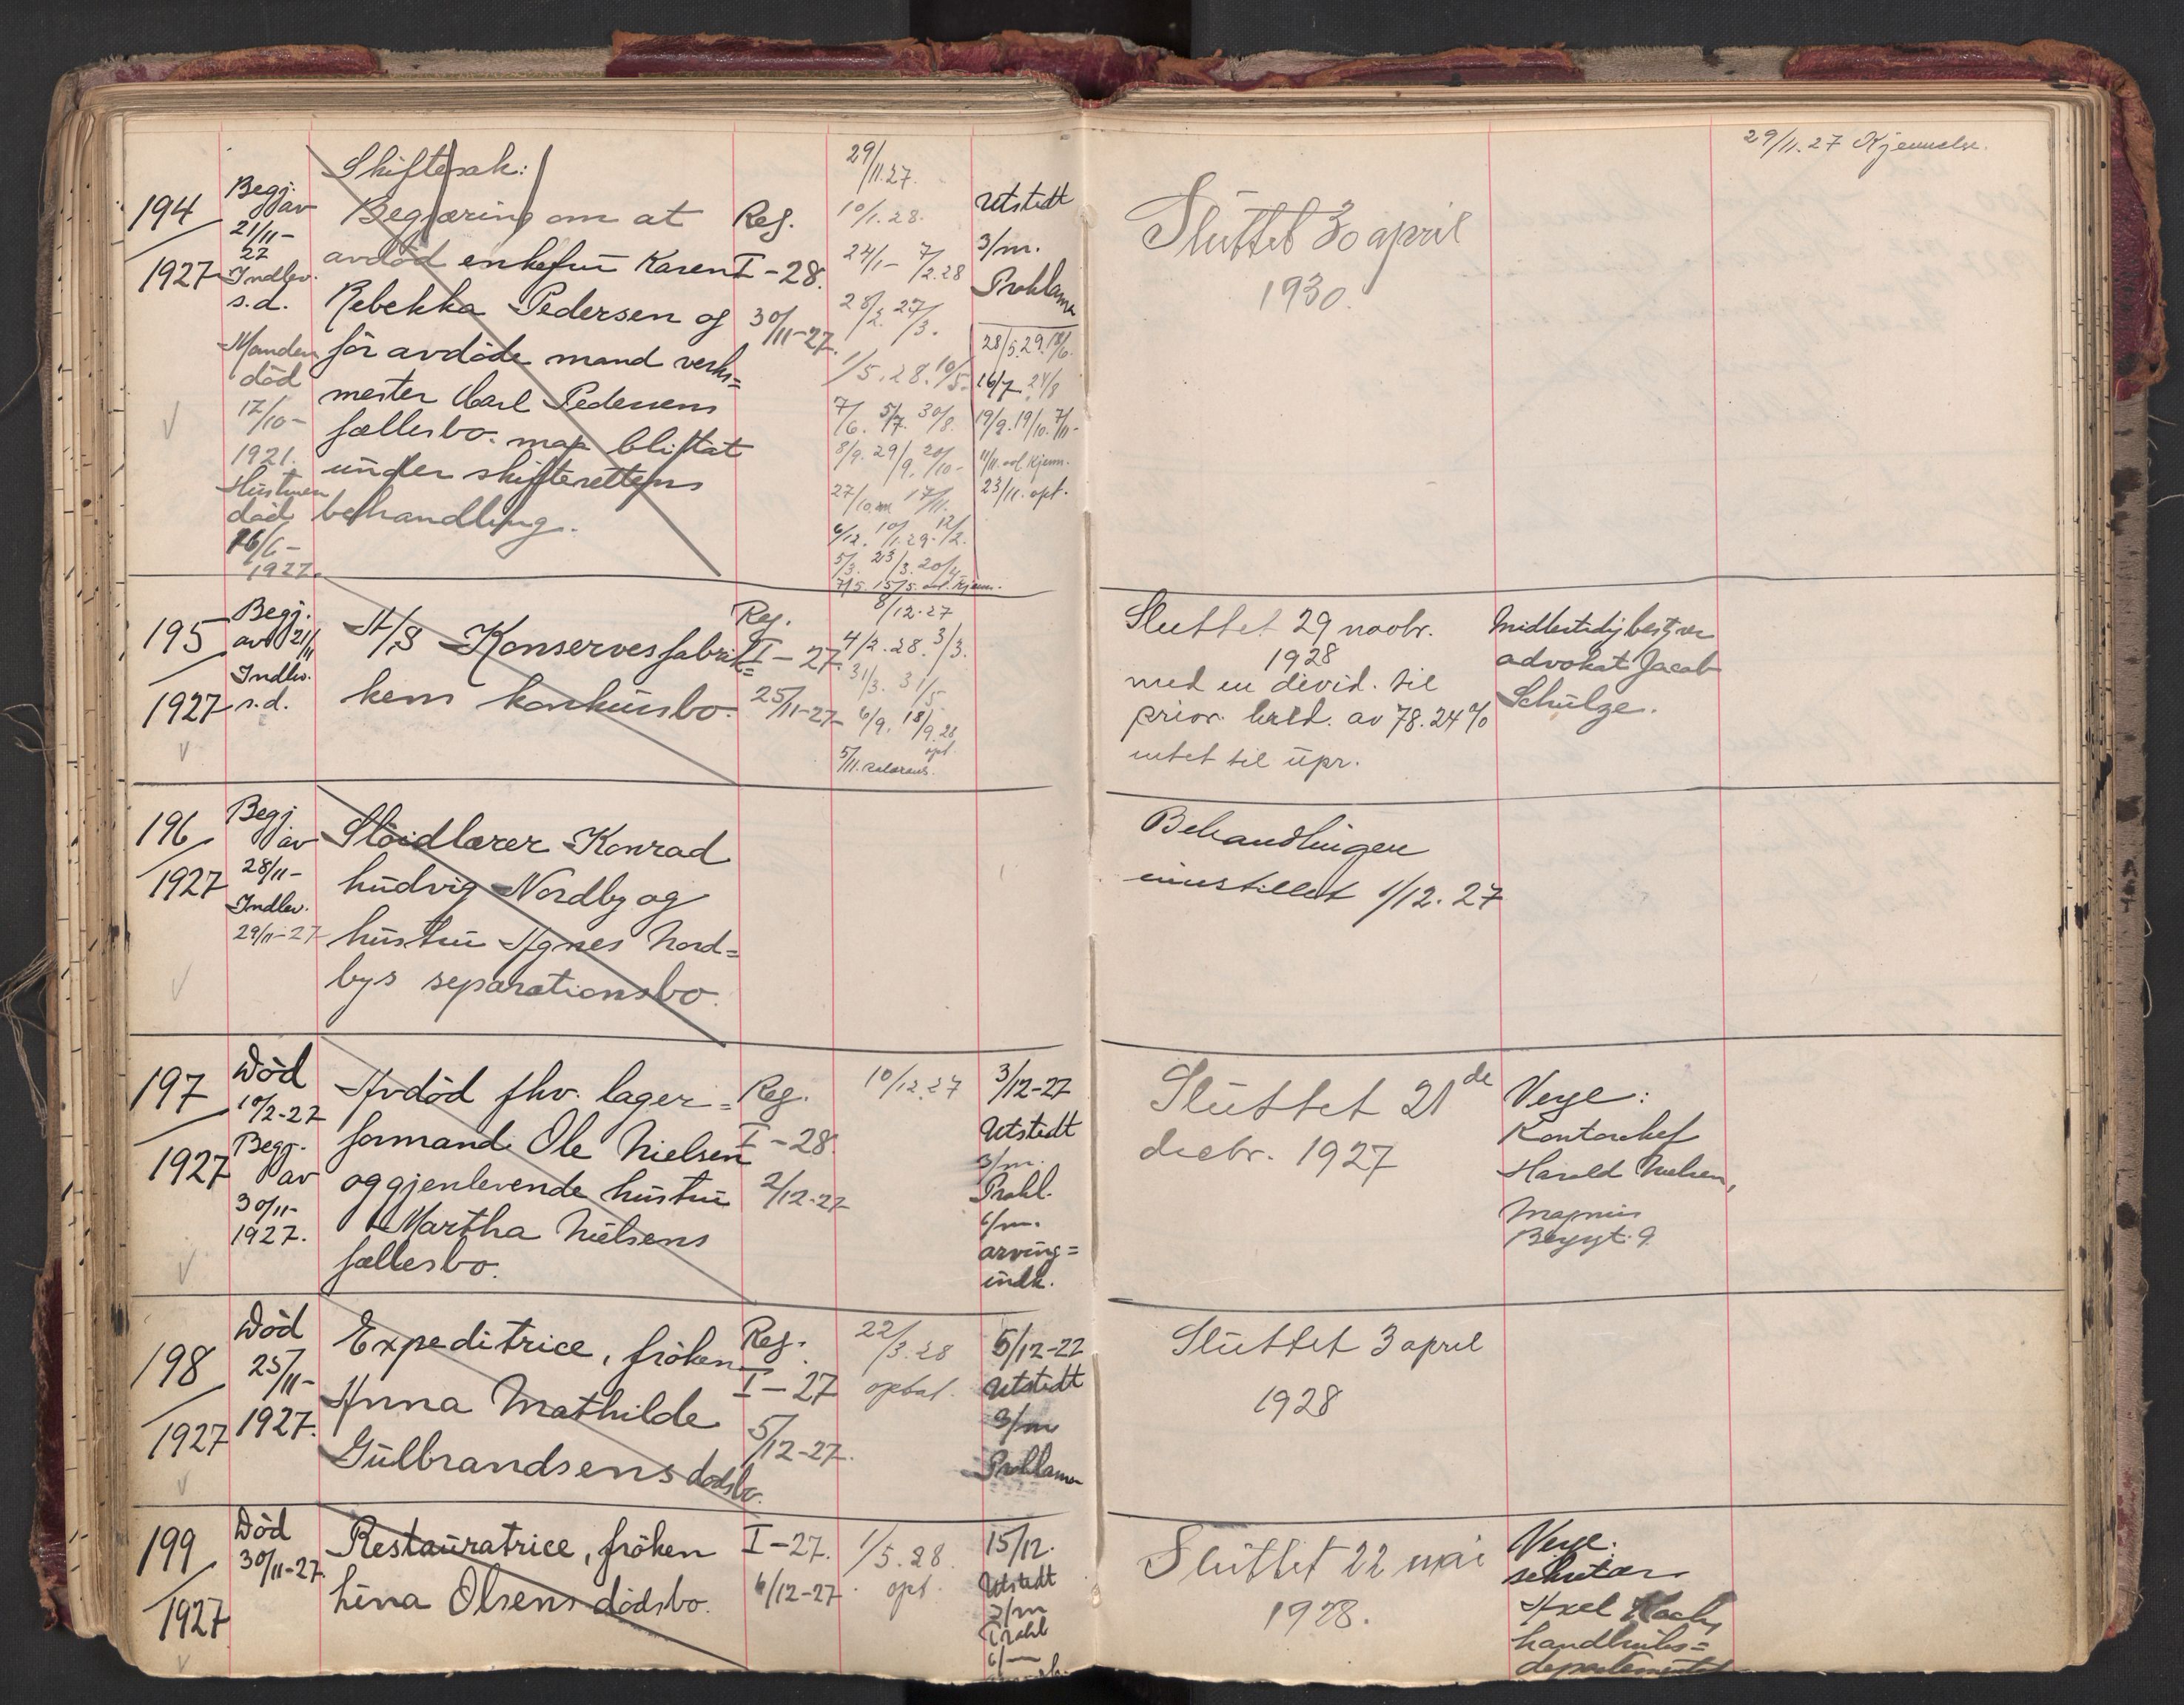 194
1927
Begj.
av
21/11-
27
Indlev.
s.d.
Manden
död
17/10-
1921.
Hustruen
död
16/6-
1927.
Skiftesak:
Begjæring om at
avdöd enkefru Karen
Rebekka Pedersen og
for avdöde mand verks=
mester Carl Pedersens
fællesbo maa bli tat
under skifterettens
behandling.
Reg.
I-28.
30/11-27.
29/11.27.
10/1.28.
24/1- 7/2.28
28/2. 27/3.
1/5.28. 10/5.
7/6. 5/7. 30/8.
8/9. 29/9. 20/10-
27/10. 17/11.
6/12. 10/1.29. 12/2.
5/3. 23/3. 20/4
7/5. 15/5. Kjenn.
Utstedt
3/m.
Proklama
28/5.29. 18/6.
16/7 21/8
19/9. 19/10. 7/11-
11/11. Kjenn.
23/11. opt.
Sluttet 30 april
1930.
29/11.27 Kjennelse.
195
1927
Begj.
av 21/11
Indlev.
s.d.
A/S Konservesfabrik=
kens konkursbo.
Reg.
I-27.
25/11-27
8/12.27
4/2.28. 3/3.
31/3. 31/5
6/9. 18/9.28
opt.
5/11.
Sluttet 29 novbr.
1928
med en divid. til
prior. kred. av 78.24%
intet til upr.
Midlertidig bestyrer
advokat Jacob
Schulze.
196
1927
Begj
av
28/11-
Indlev.
29/11-27
Slöidlærer Konrad
Ludvig Nordby og
hustru Agnes Nord=
bys separationsbo.
Behandlingen
innstillet 1/12.27
197
1927
Död
10/2-27
Begj.
av
30/11-
1927.
Avdöd fhv. lager=
formand Ole Nielsen
og gjenlevende hustru
Martha Nielsens
fællesbo.
Reg.
I-28.
2/12-27
10/12.27
3/12-27
Utstedt
3/m.
Prokl.
6/m.
arving=
indk.
Sluttet 21de
decbr. 1927
Verge:
Kontorchef
Harald Nielsen,
Magnus
Bergsgt. 9
198
1927
Död
25/11-
1927.
Expeditrice, fröken
Anna Mathilde
Gulbrandsens dödsbo.
Reg.
I-27
5/12-27.
22/3.28
optat.
5/12-27
Utstedt
3/m
Proklama
Sluttet 3 april
1928
199
1927
Död
30/11-27.
Restauratrice, fröken
Lina Olsens dödsbo.
I-27.
6/12-27
1/5.28.
opt.
15/12.
Utstedt
3/m
Prokl
6/m
Sluttet 22 mai
1928.
Verge:
sekretær
Axel
handels=
departementet